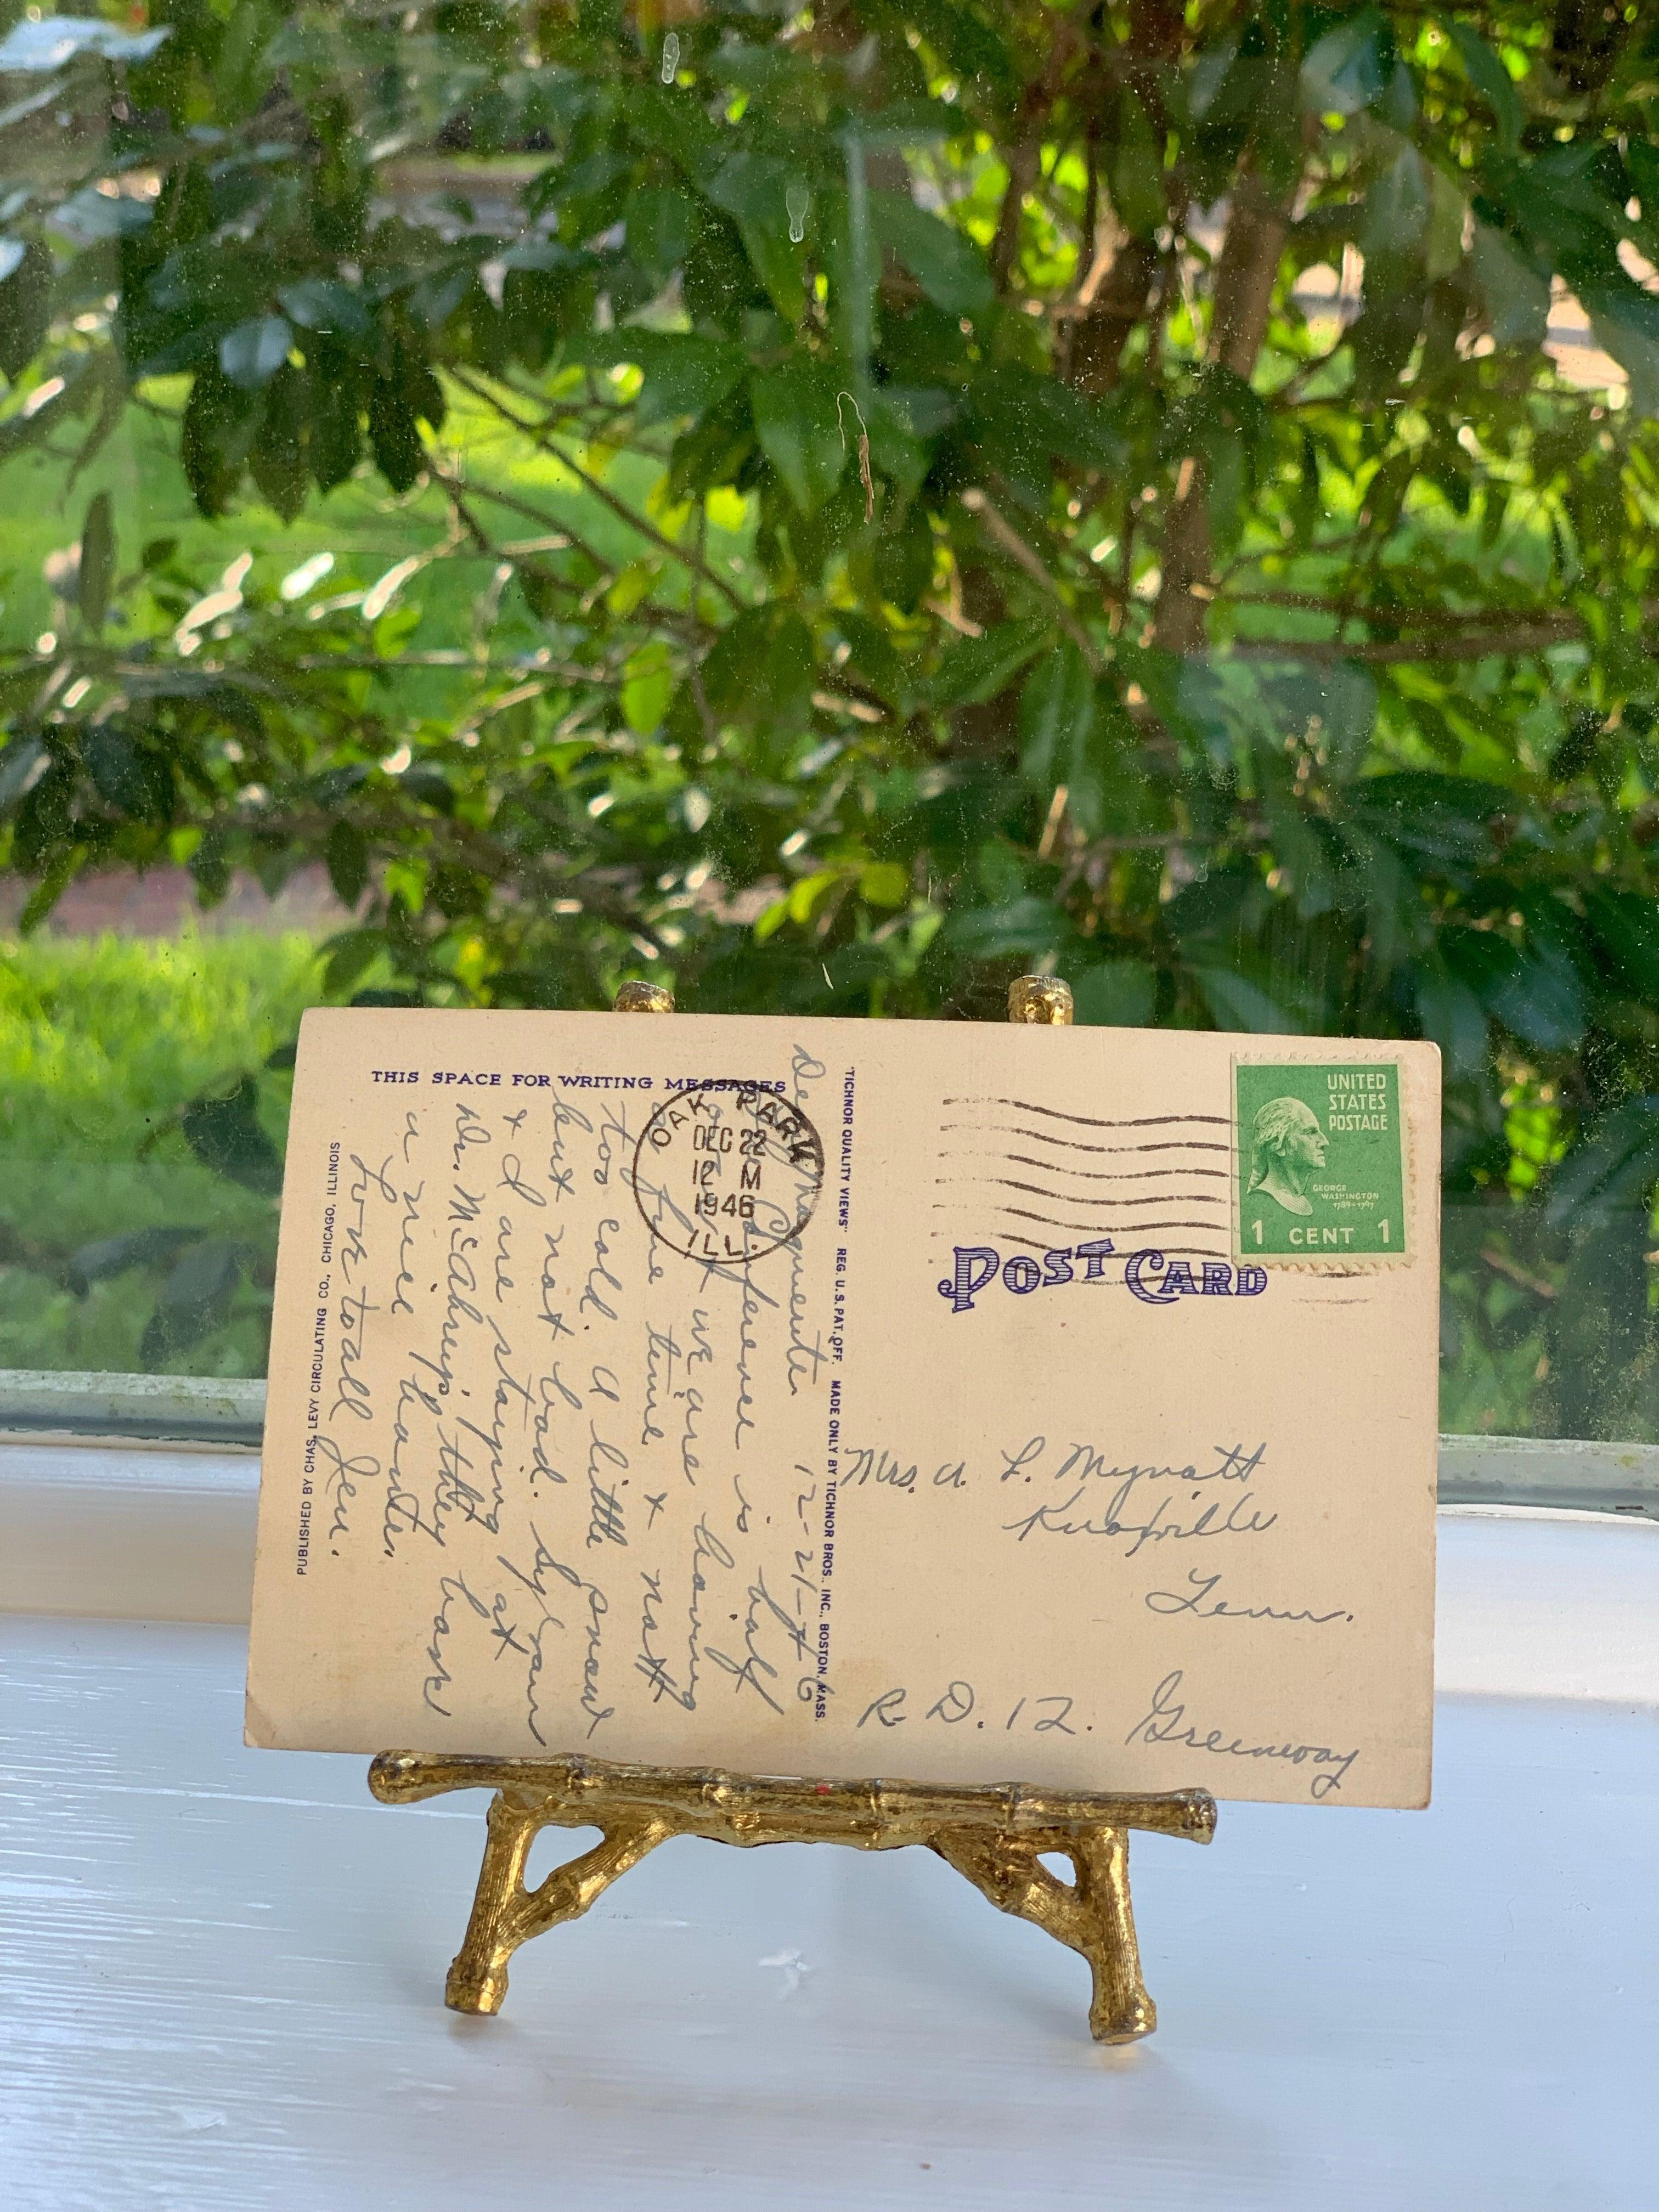 THIS SPACE FOR WRITING MESSAGES
Dear Marguerite 12-21-46
The Conference is half
over & we are having
a fine time & not
too cold. A little snow
but not bad. Sylvan
& I are staying at
Dr. McAhrips they have
a nice home.
Love to all Jen.
PUBLISHED BY CHAS. LEVY CIRCULATING CO., CHICAGO, ILLINOIS
OAK PARK
DEC 22
12 M
1946
ILL.
"TICHNOR QUALITY VIEWS" REG. U.S. PAT. OFF. MADE ONLY BY TICHNOR BROS., INC., BOSTON, MASS.
UNITED
STATES
POSTAGE
GEORGE
WASHINGTON
1789-1797
1 CENT 1
POST CARD
Mrs. A. L. Mynatt
Knoxville
Tenn.
R D. 12. Greenway